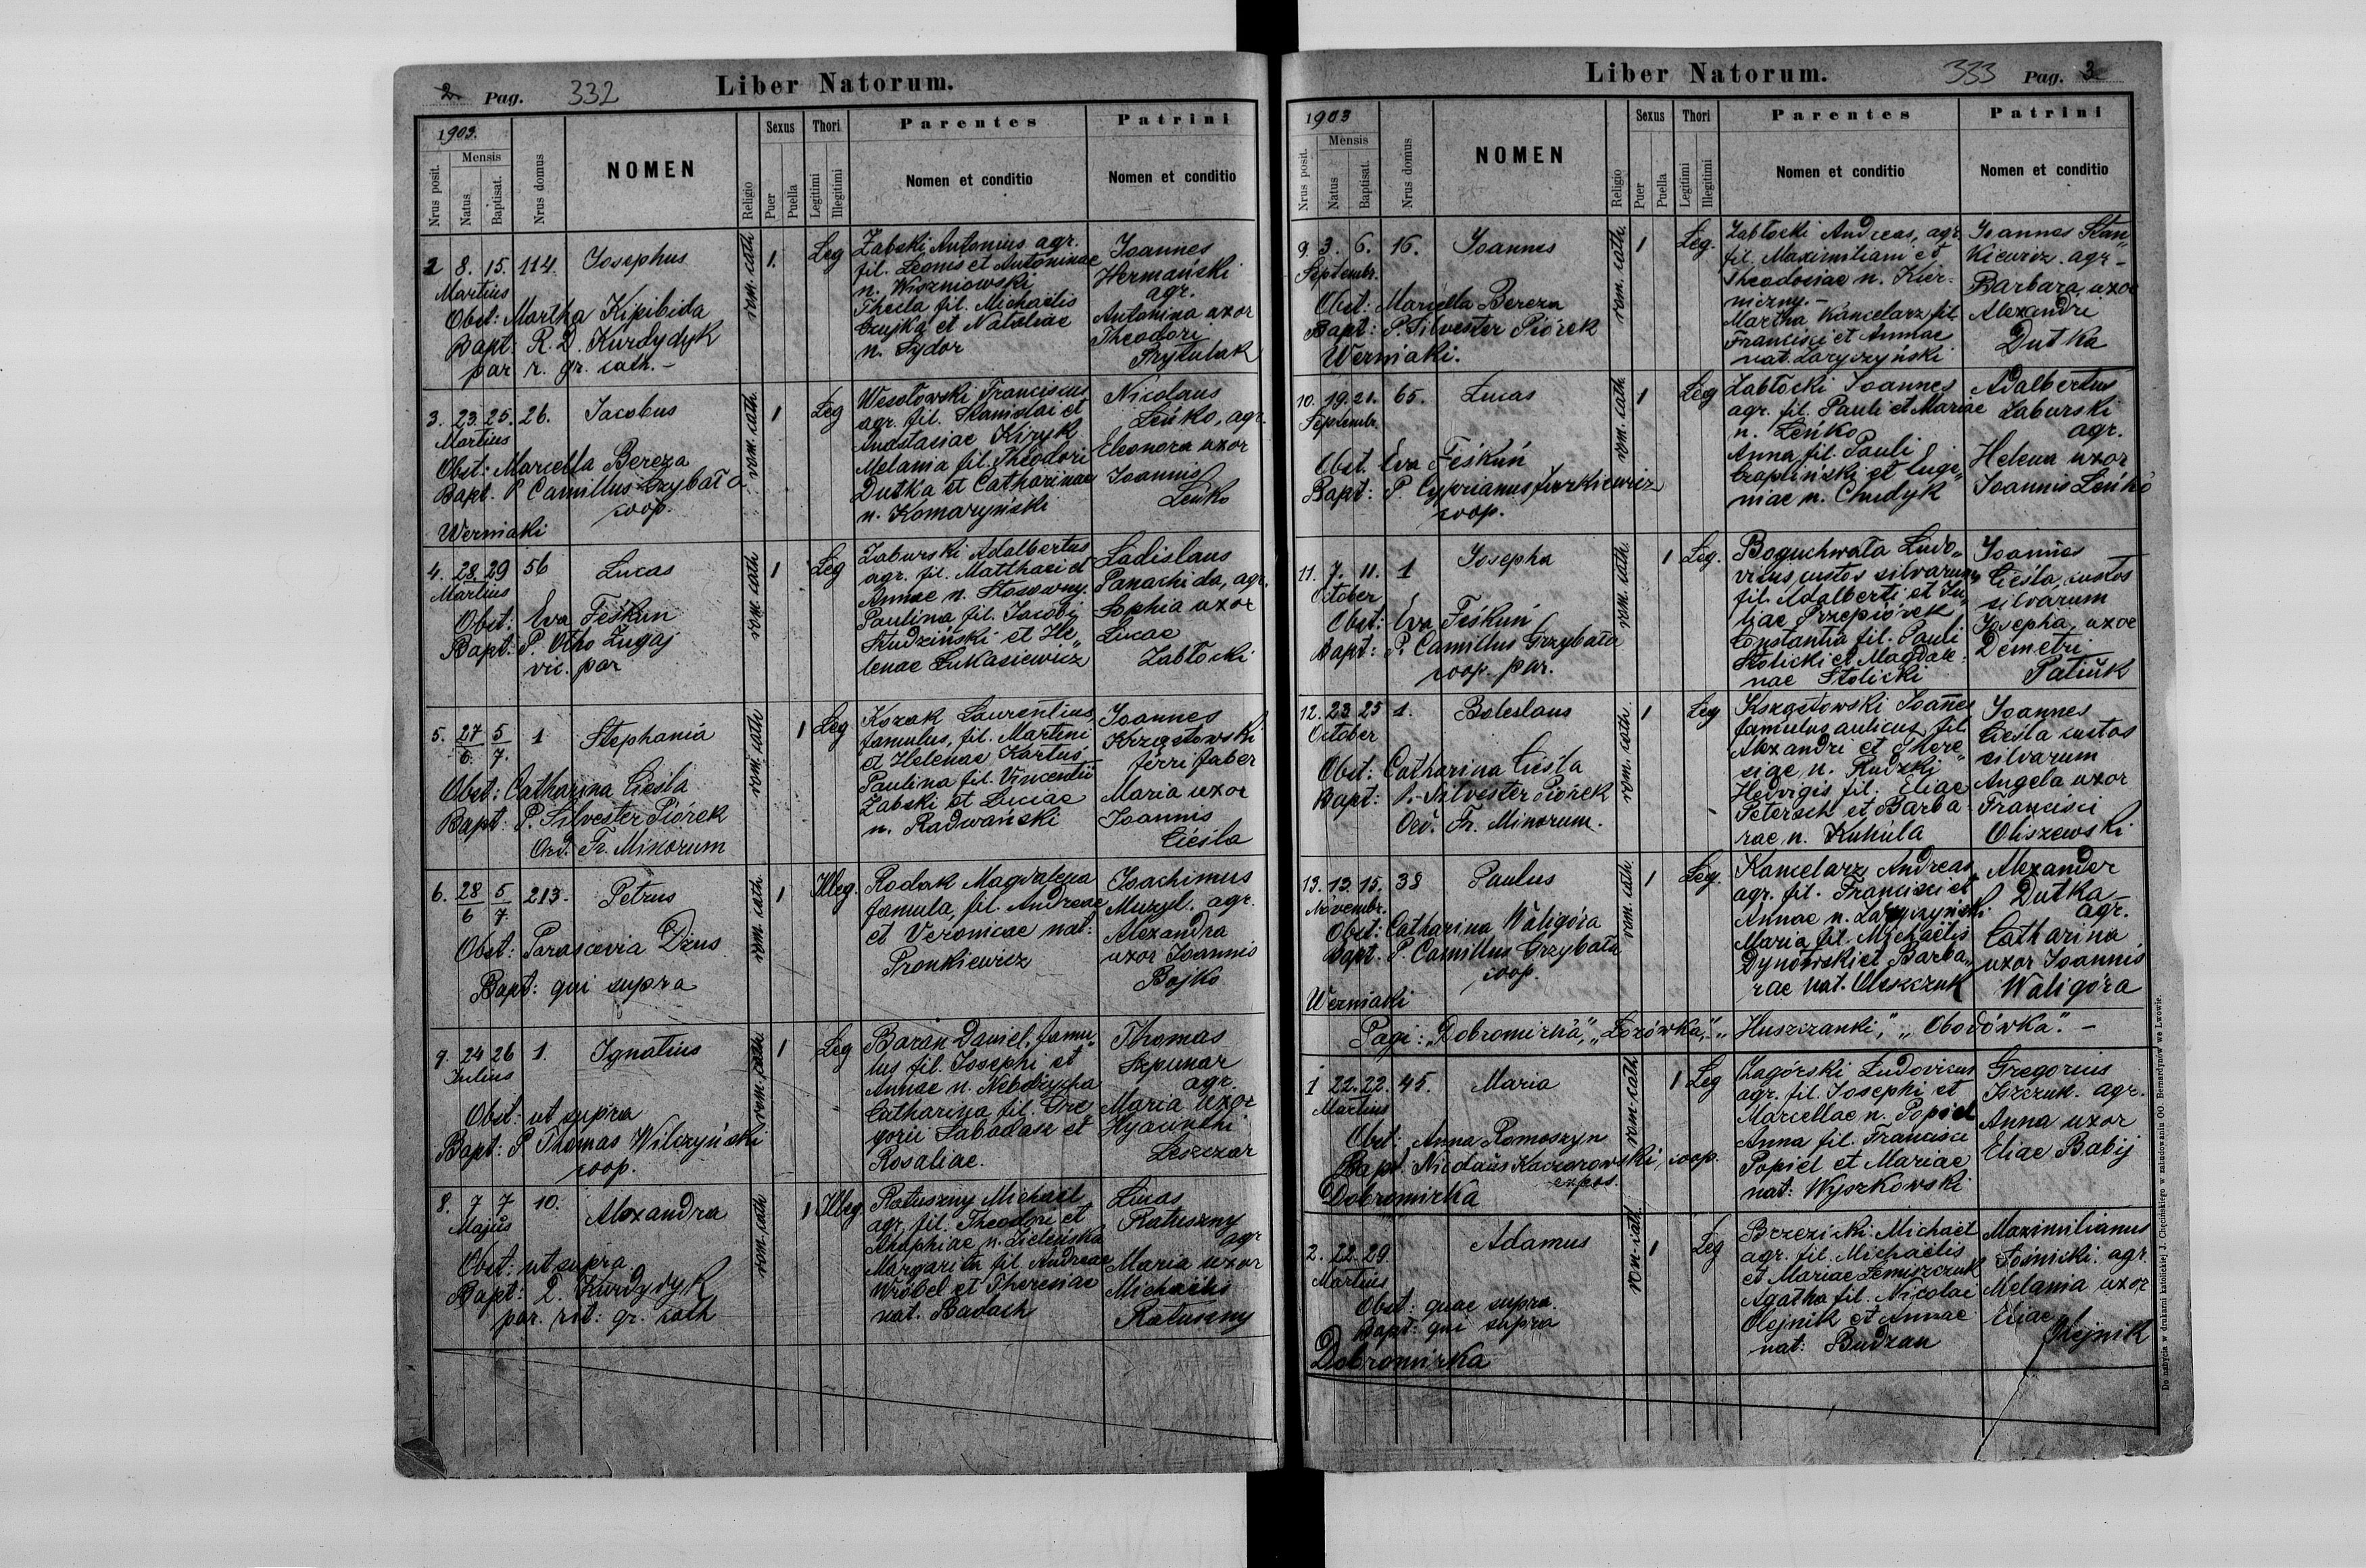 2 Pag. 332 Liber Natorum.
1903.
Nrus posit.
Mensis
Natus
Baptisat.
Nrus domus
NOMEN
Religio
Sexus
Puer
Puella
Thori
Legitimi
Illegitimi
Parentes
Nomen et conditio
Patrini
Nomen et conditio
2 8. 15. 114. Josephus rom. cath. 1. Leg
Martius
Obst: Martha Kipibida
Bapt. R. D. Kurdydyk
par r. gr. cath. -
Żabski Antonius agr.
fil. Leonis et Antoninae
n. Wiszniowski
Thecla fil. Michaëlis
Czujka et Nataliae
n. Sydor
Joannes
Hermański
agr.
Antonina uxor
Theodori
Prytulak
3. 23. 25. 26. Jacobus rom. cath. 1 Leg
Martius
Obst: Marcella Bereza
Bapt. P Camillus Grzybała
coop.
Werniaki
Wesołowski Franciscus
agr. fil. Stanislai et
Anastasiae Kiryk
Melania fil. Theodori
Dutka et Catharinae
n. Komaryński
Nicolaus
Leńko, agr.
Eleonora uxor
Joannis
Leńko
4. 28. 29 56 Lucas rom. cath 1 Leg
Martius
Obst: Eva Feśkun
Bapt: P. Otho Zugaj
vic. par
Zaburski Adalbertus
agr. fil. Matthaei et
Annae n. Stosowny.
Paulina fil. Jacobi
Studziński et He„
lenae Łukasiewicz
Ladislaus
Panachida, agr.
Sophia uxor
Lucae
Zabłocki
5. 27/6. 5/7. 1 Stephania rom. cath 1 Leg
Obst: Catharina Cieśla
Bapt: P. Silvester Piórek
Ord. Fr. Minorum
Kozak Laurentius
famulus, fil. Martini
et Helenae Kartuś
Paulina fil. Vincentii
Żabski et Luciae
n. Radwański
Joannes
Krzętowski
ferri faber
Maria uxor
Joannis
Cieśla
6. 28/6 5/7. 213. Petrus rom. cath. 1 Illeg.
Obst: Parascevia Dzius
Bapt: qui supra
Rodak Magdalena
famula, fil. Andreae
et Veronicae nat:
Pronkiewicz
Joachimus
Muzyl. agr.
Alexandra
uxor Joannis
Bojko
7. 24 26 1. Ignatius rom. cath 1 Leg
Julius
Obst: ut supra
Bapt: P Thomas Wilczyński
coop.
Baran Daniel, famu„
lus fil. Josephi et
Annae n. Nebożycha
Catharina fil. Gre
gorii Sabadasz et
Rosaliae.
Thomas
Szpunar
agr.
Maria uxor
Hyacinthi
Leszczar
8. 7 7 10. Alexandra rom. cath 1 Illeg.
Majus
Obst: ut supra
Bapt: D. Kurdydyk
par. rit: gr. cath
Ratuszny Michael
agr. fil. Theodori et
n. Zieleńska
Margarita fil. Andreae
Wróbel et Theresiae
nat. Badach
Lucas
Ratuszny
agr
Maria uxor
Michaëlis
Ratuszny
Liber Natorum. 333 Pag. 3
1903
Nrus posit.
Mensis
Natus
Baptisat.
Nrus domus
NOMEN
Religio
Sexus
Puer
Puella
Thori
Legitimi
Illegitimi
Parentes
Nomen et conditio
Patrini
Nomen et conditio
9. 3. 6. 16. Joannes rom. cath. 1 Leg.
Septembr.
Obst: Marcella Bereza
Bapt: P. Silvester Piórek
Werniaki.
Zabłocki Andreas, agr
fil. Maximiliani et
Theodosiae n. Kier-
niczny. -
Martha Kancelarz fil.
Francisci et Annae
nat. Zaryczyński
Joannes Stan„
kiewicz. agr -
Barbara uxor
Alexandri
Dutka
10. 19. 21. 65. Lucas rom. cath. 1 Leg
Septembr.
Obst. Eva Feśkuń
Bapt: P. Cyprianus Jurkiewicz
coop.
Zabłocki Joannes
agr. fil. Pauli et Mariae
n. Leńko
Anna fil. Pauli
Czapliński et Euge„
niae n. Chudyk
Adalbertus
Zaburski
agr.
Helena uxor
Joannis Leńko
11. 7. 11. 1 Josepha rom. cath. 1 Leg.
October
Obst: Eva Feśkuń
Bapt: P. Camillus Grzybała
coop. par.
Boguchwała Ludo„
vicus, custos silvarum
fil. Adalberti et Ju„
liae Przepiórek
Constantia fil. Pauli
Stolicki et Magdale-
nae Stolicki
Joannes
Cieśla, custos
silvarum
Josepha, uxor
Demetri
Patiuk
12. 23 25 1. Boleslaus rom. cath. 1 Leg
October
Obst: Catharina Cieśla
Bapt: P. Sylvester Piórek
Ord. Fr. Minorum.
Joannes
famulus aulicus, fil
Alexandri et There„
siae n. Rudzki
Hedvigis fil. Eliae
Petersch et Barba
rae n. Kukula
Joannes
Cieśla custos
silvarum
Angela uxor
Francisci
Oliszewski
13. 13. 15. 38 Paulus rom. cath. 1 Leg.
Novembr.
Obst: Catharina Waligóra
Bapt. P. Camillus Grzybała
coop.
Werniaki
Kancelarz Andreas
agr. fil. Francisci et
Annae n. Zaryczyński
Maria fil. Michaëlis
Dynowski et Barba„
rae nat. Oleszczuk
Alexander
Dutka
agr.
Catharina
uxor Joannis
Waligóra
Pagi: „Dobromirka”, „Łozówka”, „Huszczanki”, „Obodówka”. -
1 22. 22. 45. Maria rom. cath 1 Leg
Martius
Obst: Anna Romaszyn
Bapt. Nicolaus Kaczorowski, coop.
expos.
Dobromirka
Zagórski Ludovicus
agr. fil. Josephi et
Marcellae n. Popiel
Anna fil. Francisci
Popiel et Mariae
nat: Wyszkowski
Gregorius
Iszczuk. agr.
Anna uxor
Eliae Babij
2. 22. 29. Adamus rom. cath. 1 Leg
Martius
Obst: quae supra.
Bapt: qui supra
Dobromirka
Brzezicki Michael
agr. fil. Michaëlis
et Mariae Semiszczuk
Agatha fil. Nicolai
Olejnik et Annae
nat: Budzan
Maximilianus
Sośnicki. agr.
Melania uxor
Eliae
Olejnik
Do nabycia w drukarni katolickiej J. Chęcińskiego w zabudowaniu OO. Bernardynów we Lwowie.